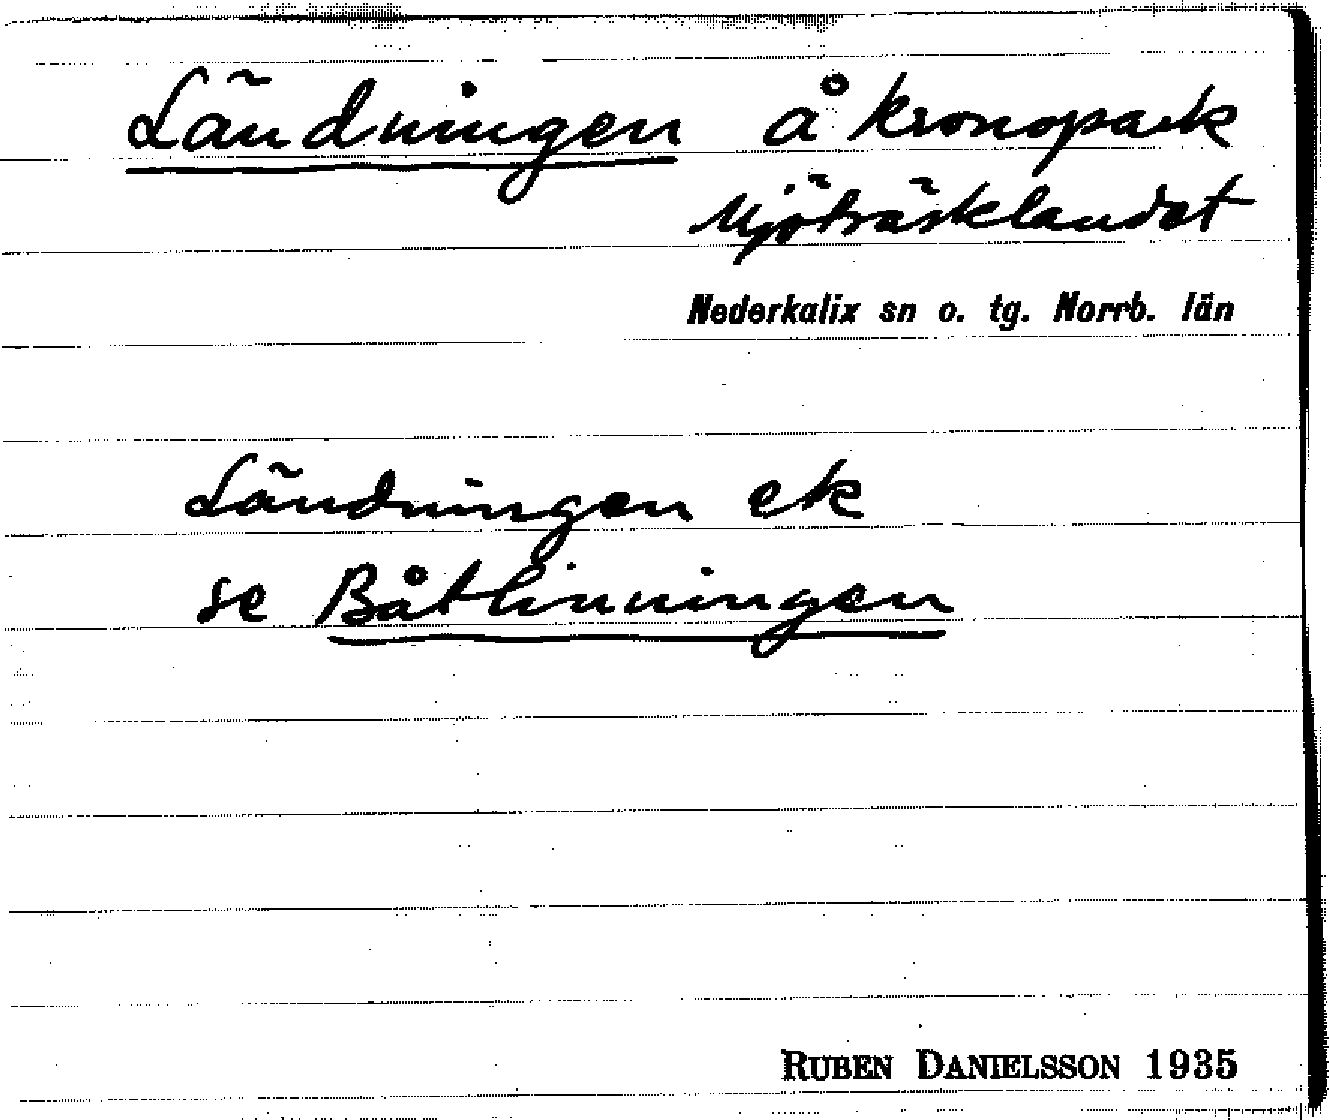 Ländningen å kronopark
Mjöträsklandet
Nederkalix sn o. tg. Norrb. län
Ländningen ek
se Båtlinningen
RUBEN DANIELSSON 1935